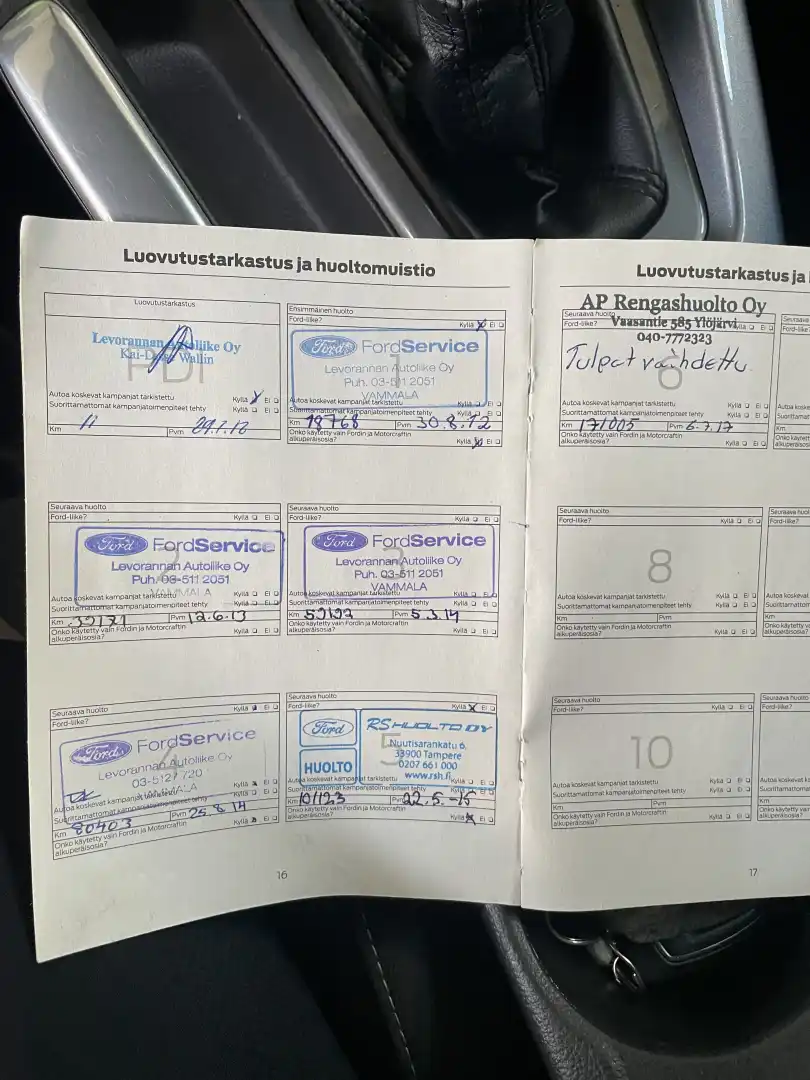 Luovutustarkastus ja huoltomuistio
Luovutustarkastus
Levorannan Autoliike Oy
Wallin
PDI
Autoa koskevat kampanjat tarkistettu Kyllä X Ei
Suorittamattomat kampanjatoimenpiteet tehty Kyllä Ei
Km 11 Pvm
Ensimmäinen huolto
Ford-liike? Kyllä X Ei
Ford FordService
1
Levorannan Autoliike Oy
Puh. 03-511 2051
VAMMALA
Autoa koskevat kampanjat tarkistettu
Suorittamattomat kampanjatoimenpiteet tehty
Km 18768 Pvm 30.8.12
Onko käytetty vain Fordin ja Motorcraftin
alkuperäisosia? Kyllä X Ei
Seuraava huolto
Ford-liike? Kyllä Ei
Ford FordService
Levorannan Autoliike Oy
Puh. 03-511 2051
VAMMALA
Autoa koskevat kampanjat tarkistettu Kyllä Ei
Suorittamattomat kampanjatoimenpiteet tehty Kyllä Ei
Km Pvm 12.6.13
Onko käytetty vain Fordin ja Motorcraftin
alkuperäisosia? Kyllä Ei
Seuraava huolto
Ford-liike? Kyllä Ei
Ford FordService
3
Levorannan Autoliike Oy
Puh. 03-511 2051
VAMMALA
Autoa koskevat kampanjat tarkistettu Kyllä Ei
Suorittamattomat kampanjatoimenpiteet tehty Kyllä Ei
Km Pvm 5.3.14
Onko käytetty vain Fordin ja Motorcraftin
alkuperäisosia? Kyllä Ei
Seuraava huolto
Ford-liike? Kyllä Ei
Ford FordService
4
Levorannan Autoliike Oy
03-5127 720
VAMMALA
Autoa koskevat kampanjat tarkistettu Kyllä Ei
Suorittamattomat kampanjatoimenpiteet tehty Kyllä Ei
Km 80403 Pvm 25.8.14
Onko käytetty vain Fordin ja Motorcraftin
alkuperäisosia? Kyllä Ei
Seuraava huolto
Ford-liike? Kyllä X Ei
Ford RS HUOLTO OY
5
Nuutisarankatu 6,
33900 Tampere
0207 661 000
HUOLTO www.rsh.fi
Autoa koskevat kampanjat tarkistettu Kyllä Ei
Suorittamattomat kampanjatoimenpiteet tehty Kyllä Ei
Km 101123 Pvm 22.5.-15
Onko käytetty vain Fordin ja Motorcraftin
alkuperäisosia? Kyllä X Ei
16
Luovutustarkastus ja
AP Rengashuolto Oy
Seuraava huolto
Ford-liike? Vaasantie 585 Ylöjärvi Kyllä Ei
040-7772323
Tulpat vaihdettu
6
Autoa koskevat kampanjat tarkistettu Kyllä Ei
Suorittamattomat kampanjatoimenpiteet tehty Kyllä Ei
Km 171005 Pvm 6.7.17
Onko käytetty vain Fordin ja Motorcraftin
alkuperäisosia? Kyllä Ei
Seuraava
Ford-liike?
Autoa kosk
Suorittamat
Km
Onko käytet
alkuperäisos
Seuraava huolto
Ford-liike? Kyllä Ei
8
Autoa koskevat kampanjat tarkistettu Kyllä Ei
Suorittamattomat kampanjatoimenpiteet tehty Kyllä Ei
Km Pvm
Onko käytetty vain Fordin ja Motorcraftin
alkuperäisosia? Kyllä Ei
Seuraava huol
Ford-liike?
Autoa koskev
Suorittamatto
Km
Onko käytetty v
alkuperäisosia?
Seuraava huolto
Ford-liike? Kyllä Ei
10
Autoa koskevat kampanjat tarkistettu Kyllä Ei
Suorittamattomat kampanjatoimenpiteet tehty Kyllä Ei
Km Pvm
Onko käytetty vain Fordin ja Motorcraftin
alkuperäisosia? Kyllä Ei
Seuraava huolto
Ford-liike?
Autoa koskevat
Suorittamattomat
Km
Onko käytetty vain
alkuperäisosia?
17